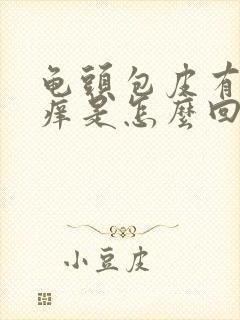 龟頭包皮有
癢是怎麼回
小豆皮